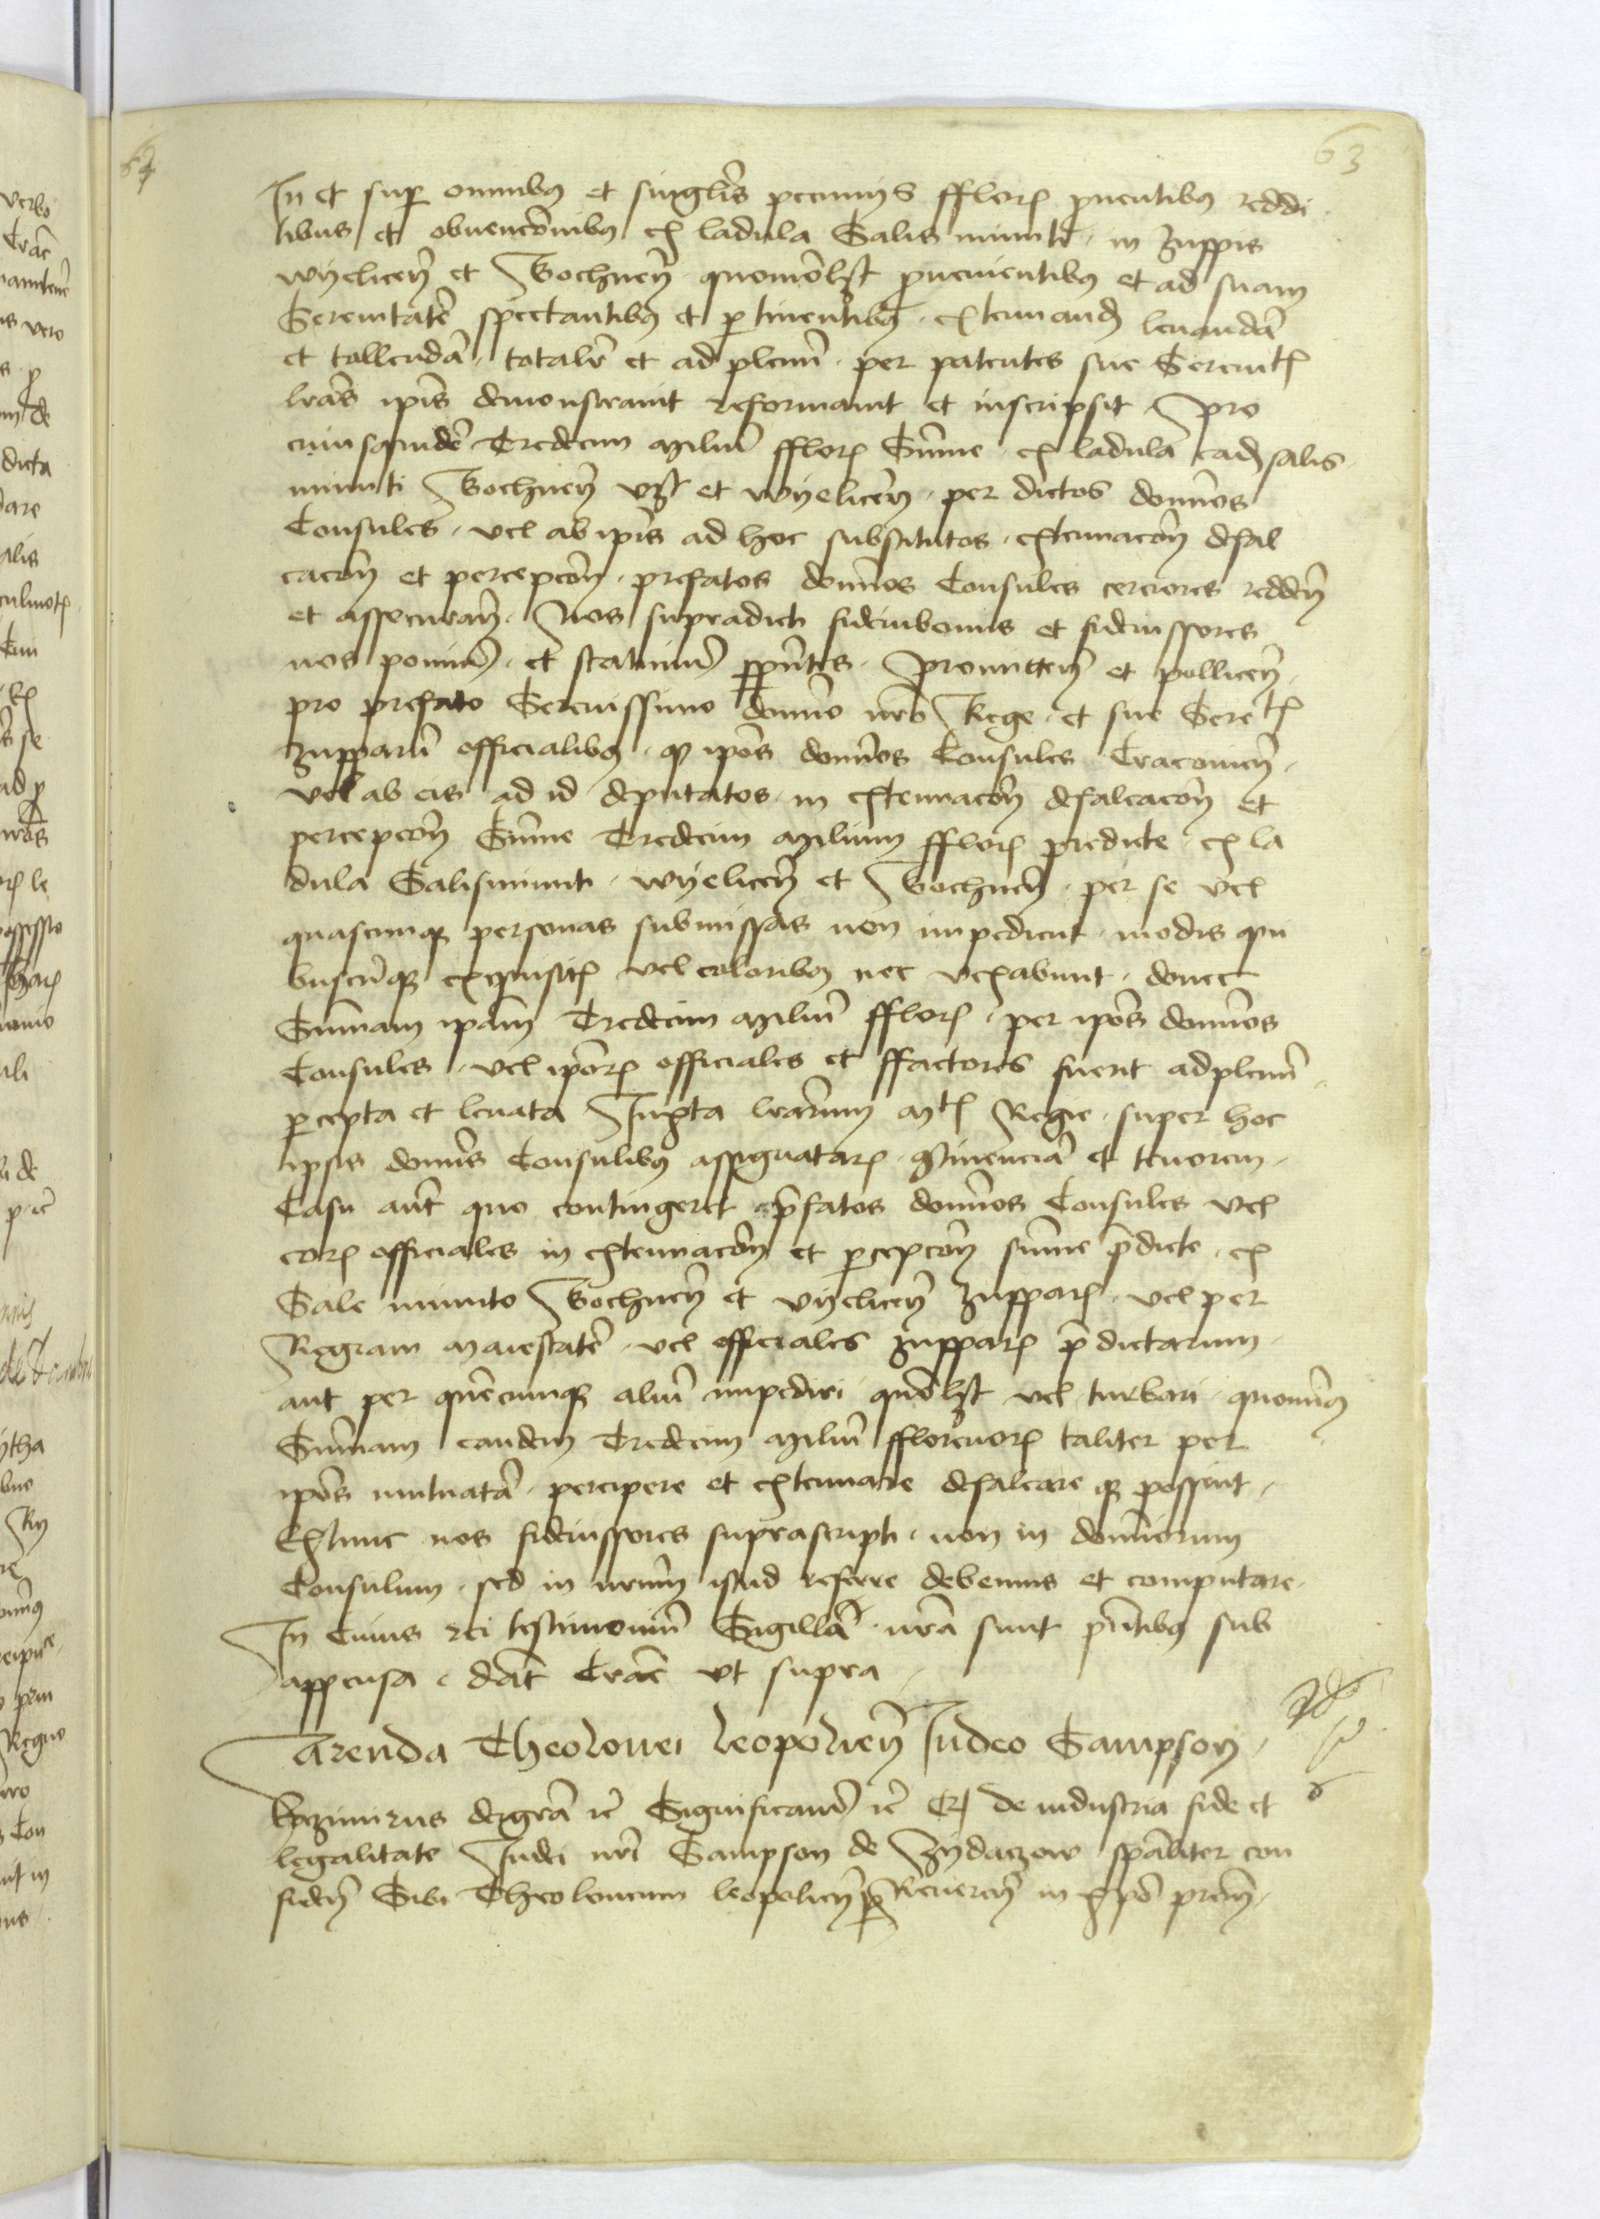 63
In et sup omnibus et singlis pecunijs fflor prouentibus reddi
tibus et obuencionibus ex ladula Salis minuti in Zuppis
wyelicen et Bochnen quomolibet prouenientibus et ad suam
Serenitate spectantibus et pertinentibus extenuand leuanda
et tollenda totalr et ad plenu per patentes sue Serenit
lras ipis demonstrauit reformauit et inscripsit Pro
cuiusquide Tredecim miliu fflor Sume ex ladula eade salis
minuti Bochnen vz et wyelicen per dictos domnos
Consules vel ab ipis ad hoc substitutos extenuacon defal
cacon et percepcon prefatos domnos Consules cerciores redden
et assecuran Nos supradicti fideiubemus et fideiussores
nos ponim et statuim pntes Promitten et pollicen
pro prefato Serenissimo domno nro Rege et sue Seret
zupparu officialibus q ipos domnos Consules Cracouien
vel ab eis ad id deputatos in extenuacon defalcacon et
percepcon Sume Tredecim milium fflor predicte ex la
dula Salis minuti wyelicen et Bochnen per se vel
quascunq personas submissas non impedient modis qui
buscunq exquisit vel coloribus nec vexabunt donec
Summam ipam Tredecim miliu fflor per ipos domnos
Consules vel ipor officiales et ffactores fuerit ad plenu
percepta et leuata Juxta lrarum Mt Regie super hoc
ipsis domnis Consulibus assignatar continencia et tenorem
Casu aut quo contingeret prefatos domnos Consules vel
eor officiales in extenuacon et percepcon sume predicte ex
Sale minuto Bochnen et vyelicen Zuppar vel per
Regiam maiestate vel officiales zuppar predictarum
aut per quecunq aliu impediri quolibet vel turbari quominus
Summam eandem Tredecim miliu fflorenor taliter per
ipos mutuata percipere et extenuare defalcare q possint
Extunc nos fideiussores suprascripti non in dominorum
Consulum sed in nrum istud referre debemus et computare
In Cuius rei testimoniu Sigilla nra sunt pntibus sub
appensa dat Crac vt supra
Arenda Theolonei leopolien Judeo Sampson
kazimirus dei gra etc Significam etc Qr de industria fide et
legalitate Judei nri Sampson de Zydaczow spaliter con
fiden Sibi Theoloneum leopolien